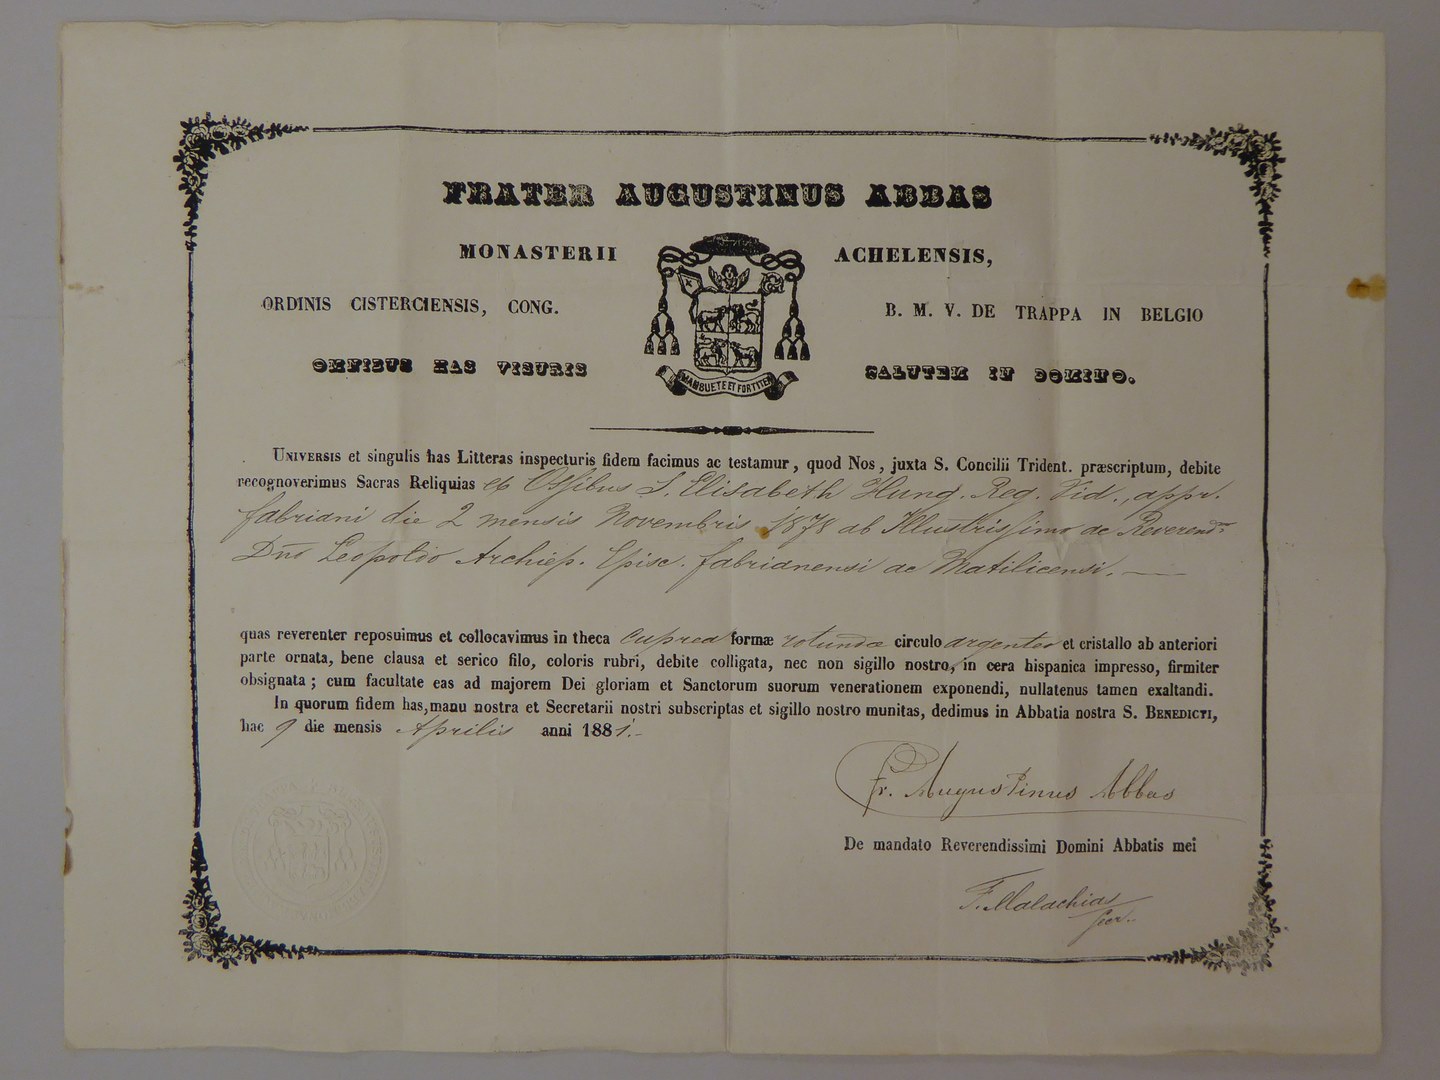 FRATER AUGUSTINUS ABBAS
MONASTERII ACHELENSIS,
ORDINIS CISTERCIENSIS, CONG. B. M. V. DE TRAPPA IN BELGIO
OMNIBUS HAS VISURIS SALUTEM IN DOMINO.
MANSUETE ET FORTITER
UNIVERSIS et singulis has Litteras inspecturis fidem facimus ac testamur, quod Nos, juxta S. Concilii Trident. præscriptum, debite
recognoverimus Sacras Reliquias ex Ossibus S. Elisabeth Hung. Reg. Vid., appr.
fabriani die 2 mensis Novembris 1878 ab Illustrissimo ac Reverendmo
Dno Leopoldo Archiep. Episc. fabrianensi ac Matilicensi. —
quas reverenter reposuimus et collocavimus in theca cuprea formæ rotundæ circulo argenteo et cristallo ab anteriori
parte ornata, bene clausa et serico filo, coloris rubri, debite colligata, nec non sigillo nostro, in cera hispanica impresso, firmiter
obsignata; cum facultate eas ad majorem Dei gloriam et Sanctorum suorum venerationem exponendi, nullatenus tamen exaltandi.
In quorum fidem has, manu nostra et Secretarii nostri subscriptas et sigillo nostro munitas, dedimus in Abbatia nostra S. BENEDICTI,
hac 9 die mensis Aprilis anni 1881.-
Fr. Augustinus Abbas
De mandato Reverendissimi Domini Abbatis mei
F. Malachias
Secr.